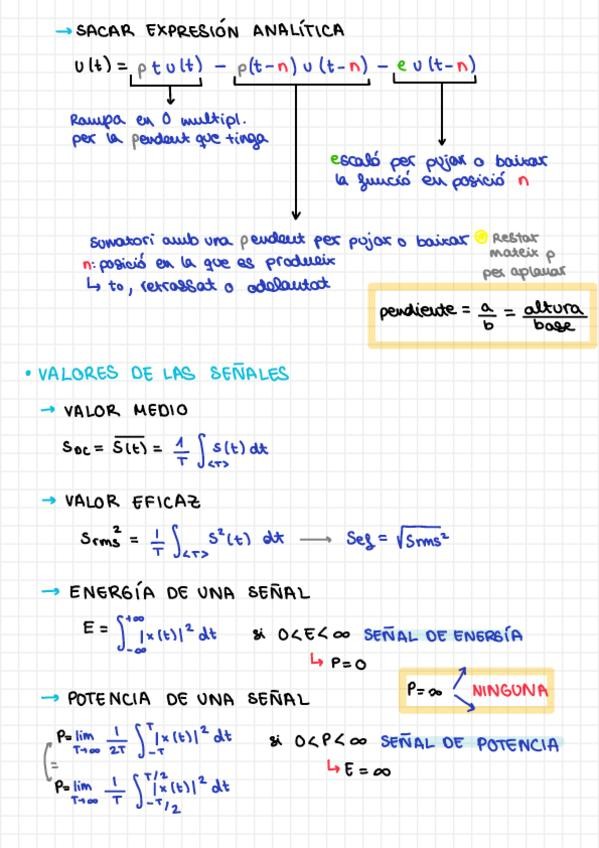 → SACAR EXPRESIÓN ANALÍTICA
υ(t) = p t υ(t) − p(t-n) υ (t-n) − e υ (t-n)
Rampa en 0 multipl.
per la pendent que tinga
escaló per pujar o baixar
la funció en posició n
Sumatori amb una pendent per pujar o baixar
Restar
mateix p
per aplanar
n: posició en la que es produeix
↳ to, retrassat o adelantat
pendiente = a/b = altura/base
• VALORES DE LAS SEÑALES
→ VALOR MEDIO
S_DC = \overline{S(t)} = 1/T ∫_<T> s(t) dt
→ VALOR EFICAZ
S_rms² = 1/T ∫_<T> s²(t) dt → Sef = √Srms²
→ ENERGÍA DE UNA SEÑAL
E = ∫_-∞^+∞ |x(t)|² dt si 0<E<∞ SEÑAL DE ENERGÍA
↳ P=0
P=∞ NINGUNA
→ POTENCIA DE UNA SEÑAL
P=lim T→∞ 1/2T ∫_-T^T |x(t)|² dt si 0<P<∞ SEÑAL DE POTENCIA
=
↳ E=∞
P=lim T→∞ 1/T ∫_-T/2^T/2 |x(t)|² dt